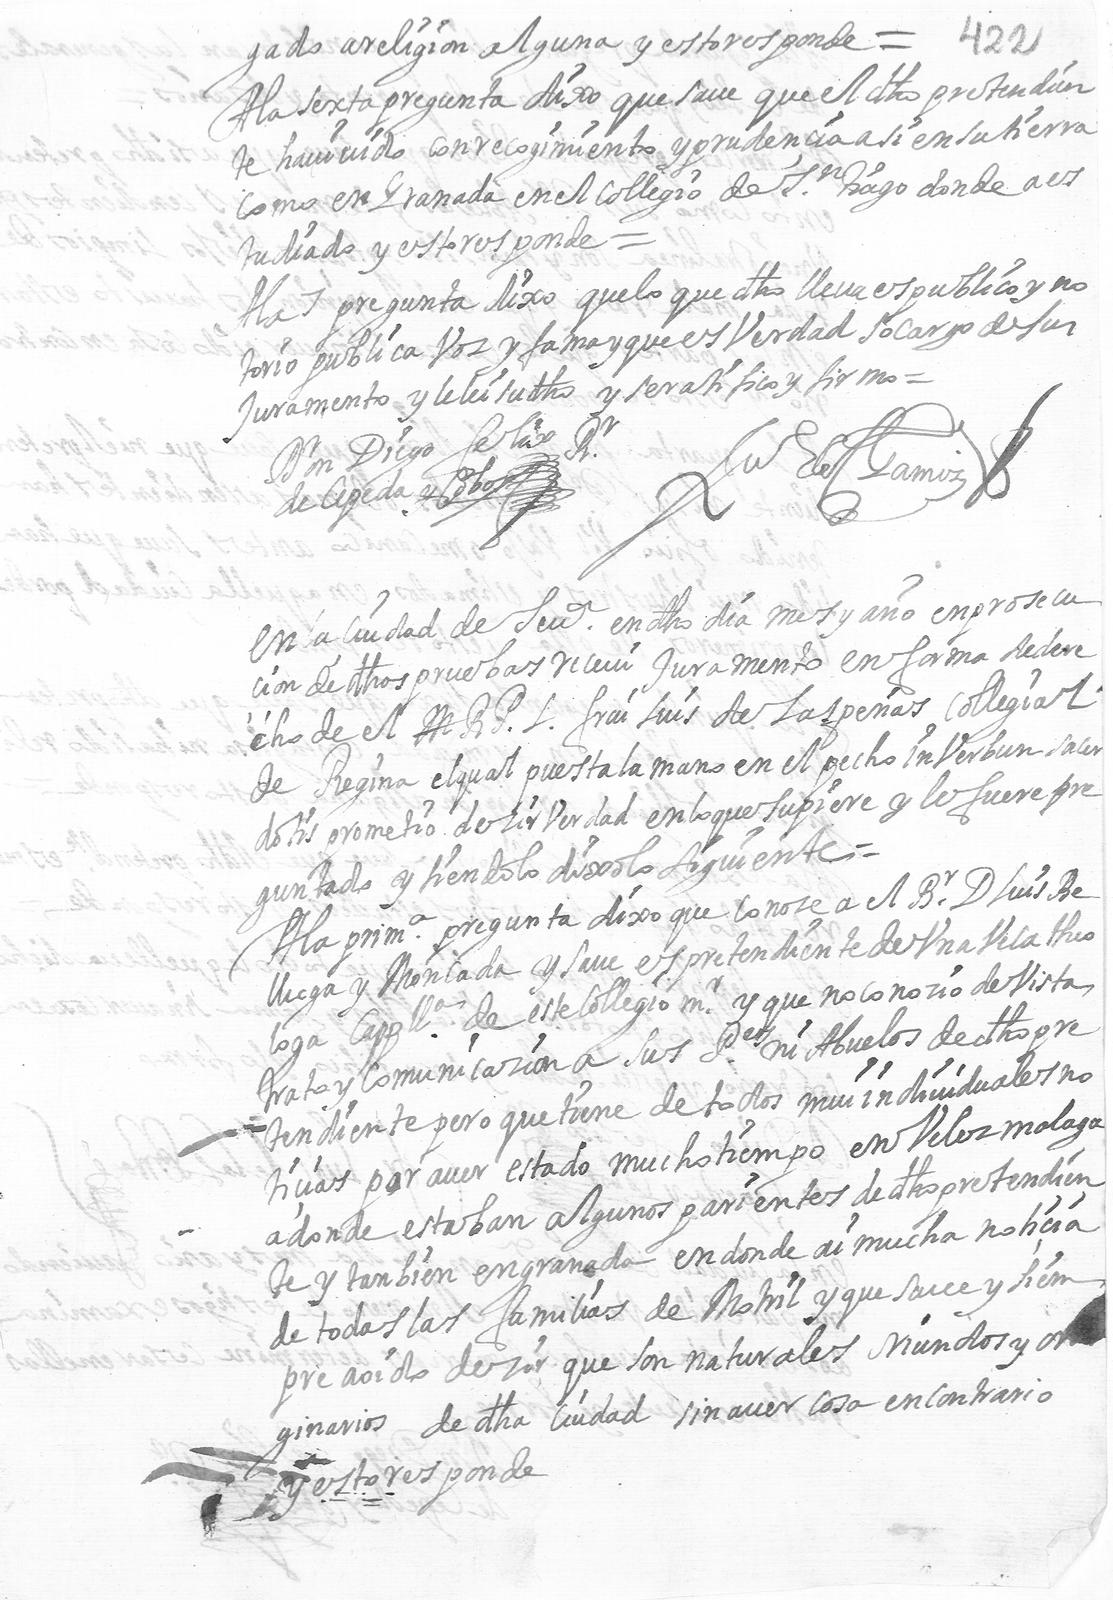 422
gado a religion alguna y esto responde =
A la sexta pregunta dixo que saue que el dho pretendien
te ha viuido con recogimiento y prudencia asi en su tierra
como en Granada en el Collegio de S.n tiago donde a es
tudiado y esto responde =
A la s pregunta dixo que lo que dho lleua es publico y no
torio publica Voz y fama y que es Verdad so cargo de su
Juramento y le lei su dho y se ratifico y firmo =
Don Diego Felix
de Cepeda
En la Ciudad de Seu.a en dho dia mes y año en prosecu
cion de dhos pruebas reciui Juramento en forma de dere
cho de el M R P. L. frai Luis de Las peñas Collegial
de Regina el qual puesta la mano en el pecho in Verbun sacer
dotis prometio desir Verdad en lo que supiere y le fuere pre
guntado y siendolo dixo lo siguiente =
A la prim.a pregunta dixo que conose a el B.r D Luis Be
lluga y Moncada y saue es pretendiente de Vna Veca theo
loga Capp.lla de este Collegio m.r y que no conosio de Vista
trato y Comunicasion a sus P.es ni Abuelos de dho pre
tendiente pero que tiene de todos mui indiuiduales no
ticias por auer estado mucho tiempo en Velez malaga
a donde estaban algunos parientes de dho pretendien
te y tanbien en granada en donde ai mucha noticia
de todas las familias de Motril y que saue y siem
pre a oido desir que son naturales oriundos y ori
ginarios de dha Ciudad sin auer cosa en contrario
y esto responde